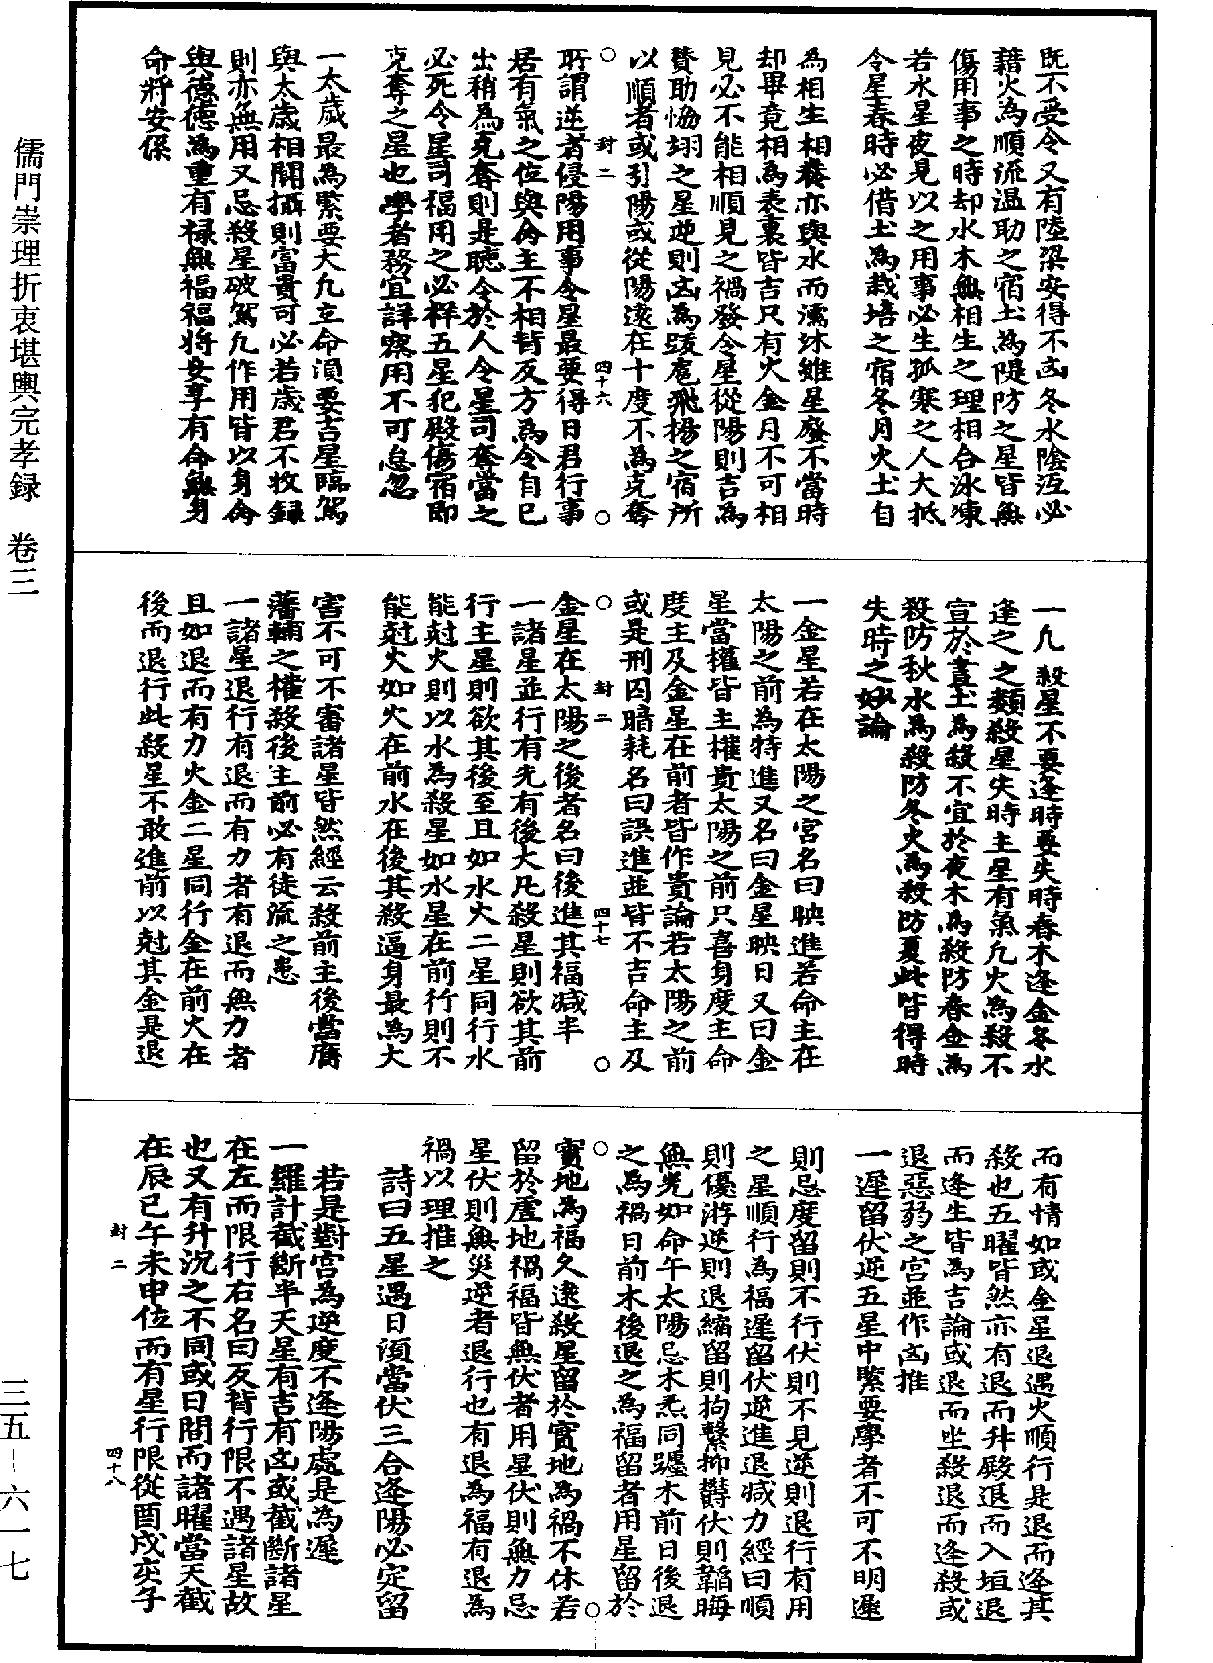 儒門崇理折衷堪輿完孝録　卷三
三五―六一七
既不受令又有陸梁安得不凶冬水陰沍必
藉火為順流温助之宿土為隄防之星皆無
傷用事之時却水木無相生之理相合氷凍
若水星夜見以之用事必生孤寒之人大抵
令星春時必借土為栽培之宿冬月火土自
為相生相養亦與水而濡沐雖星廢不當時
却畢竟相為表裏皆吉只有火金月不可相
見必不能相順見之禍發令星從陽則吉為
賛助恊翊之星逆則凶為跋扈飛揚之宿所
以順者或引陽或從陽遠在十度不為克奪
○　封二　四十六　○
所謂逆者侵陽用事令星最要得日君行事
居有氣之位與命主不相背反方為令自巳
出稍為克奪則是聴令於人令星司奪當之
必死令星司福用之必祥五星犯殿傷宿即
克奪之星也學者務宜詳察用不可怠忽
一太歲最為緊要大凢立命須要吉星臨駕
與太歲相關攝則富貴可必若歲君不收録
則亦無用又忌殺星破駕凢作用皆以身命
與德德為重有禄無福福將安享有命無身
命將安保
一凢殺星不要逢時要失時春木逢金冬水
逢之之類殺星失時主星有氣凢火為殺不
宜於晝土為殺不宜於夜木為殺防春金為
殺防秋水為殺防冬火為殺防夏此皆得時
失時之妙論
一金星若在太陽之宮名曰映進若命主在
太陽之前為特進又名曰金星映日又曰金
星當權皆主權貴太陽之前只喜身度主命
度主及金星在前者皆作貴論若太陽之前
或是刑囚暗耗名曰誤進並皆不吉命主及
○　封二　四十七　○
金星在太陽之後者名曰後進其福減半
一諸星並行有先有後大凡殺星則欲其前
行主星則欲其後至且如水火二星同行水
能尅火則以水為殺星如水星在前行則不
能尅火如火在前水在後其殺逼身最為大
害不可不審諸星皆然經云殺前主後當膺
藩輔之權殺後主前必有徒流之患
一諸星退行有退而有力者有退而無力者
且如退而有力火金二星同行金在前火在
後而退行此殺星不敢進前以尅其金是退
而有情如或金星退遇火順行是退而逢其
殺也五曜皆然亦有退而升殿退而入垣退
而逢生皆為吉論或退而坐殺退而逢殺或
退惡弱之宮並作凶推
一遲留伏逆五星中緊要學者不可不明遲
則忌度留則不行伏則不見逆則退行有用
之星順行為福遲留伏逆進退減力經曰順
則優游逆則退縮留則拘繫抑欝伏則韜晦
無光如命午太陽忌木炁同躔木前日後退
之為禍日前木後退之為福留者用星留於
○　○
實地為福久逺殺星留於實地為禍不休若
留於虗地禍福皆無伏者用星伏則無力忌
星伏則無災逆者退行也有退為福有退為
禍以理推之
詩曰五星遇日須當伏三合逢陽必定留
若是對宮為逆度不逢陽處是為遲
一羅計截斷半天星有吉有凶或截斷諸星
在左而限行右名曰反背行限不遇諸星故
也又有升沉之不同或日間而諸曜當天截
在辰巳午未申位而有星行限從酉戌亥子
封二　四十八